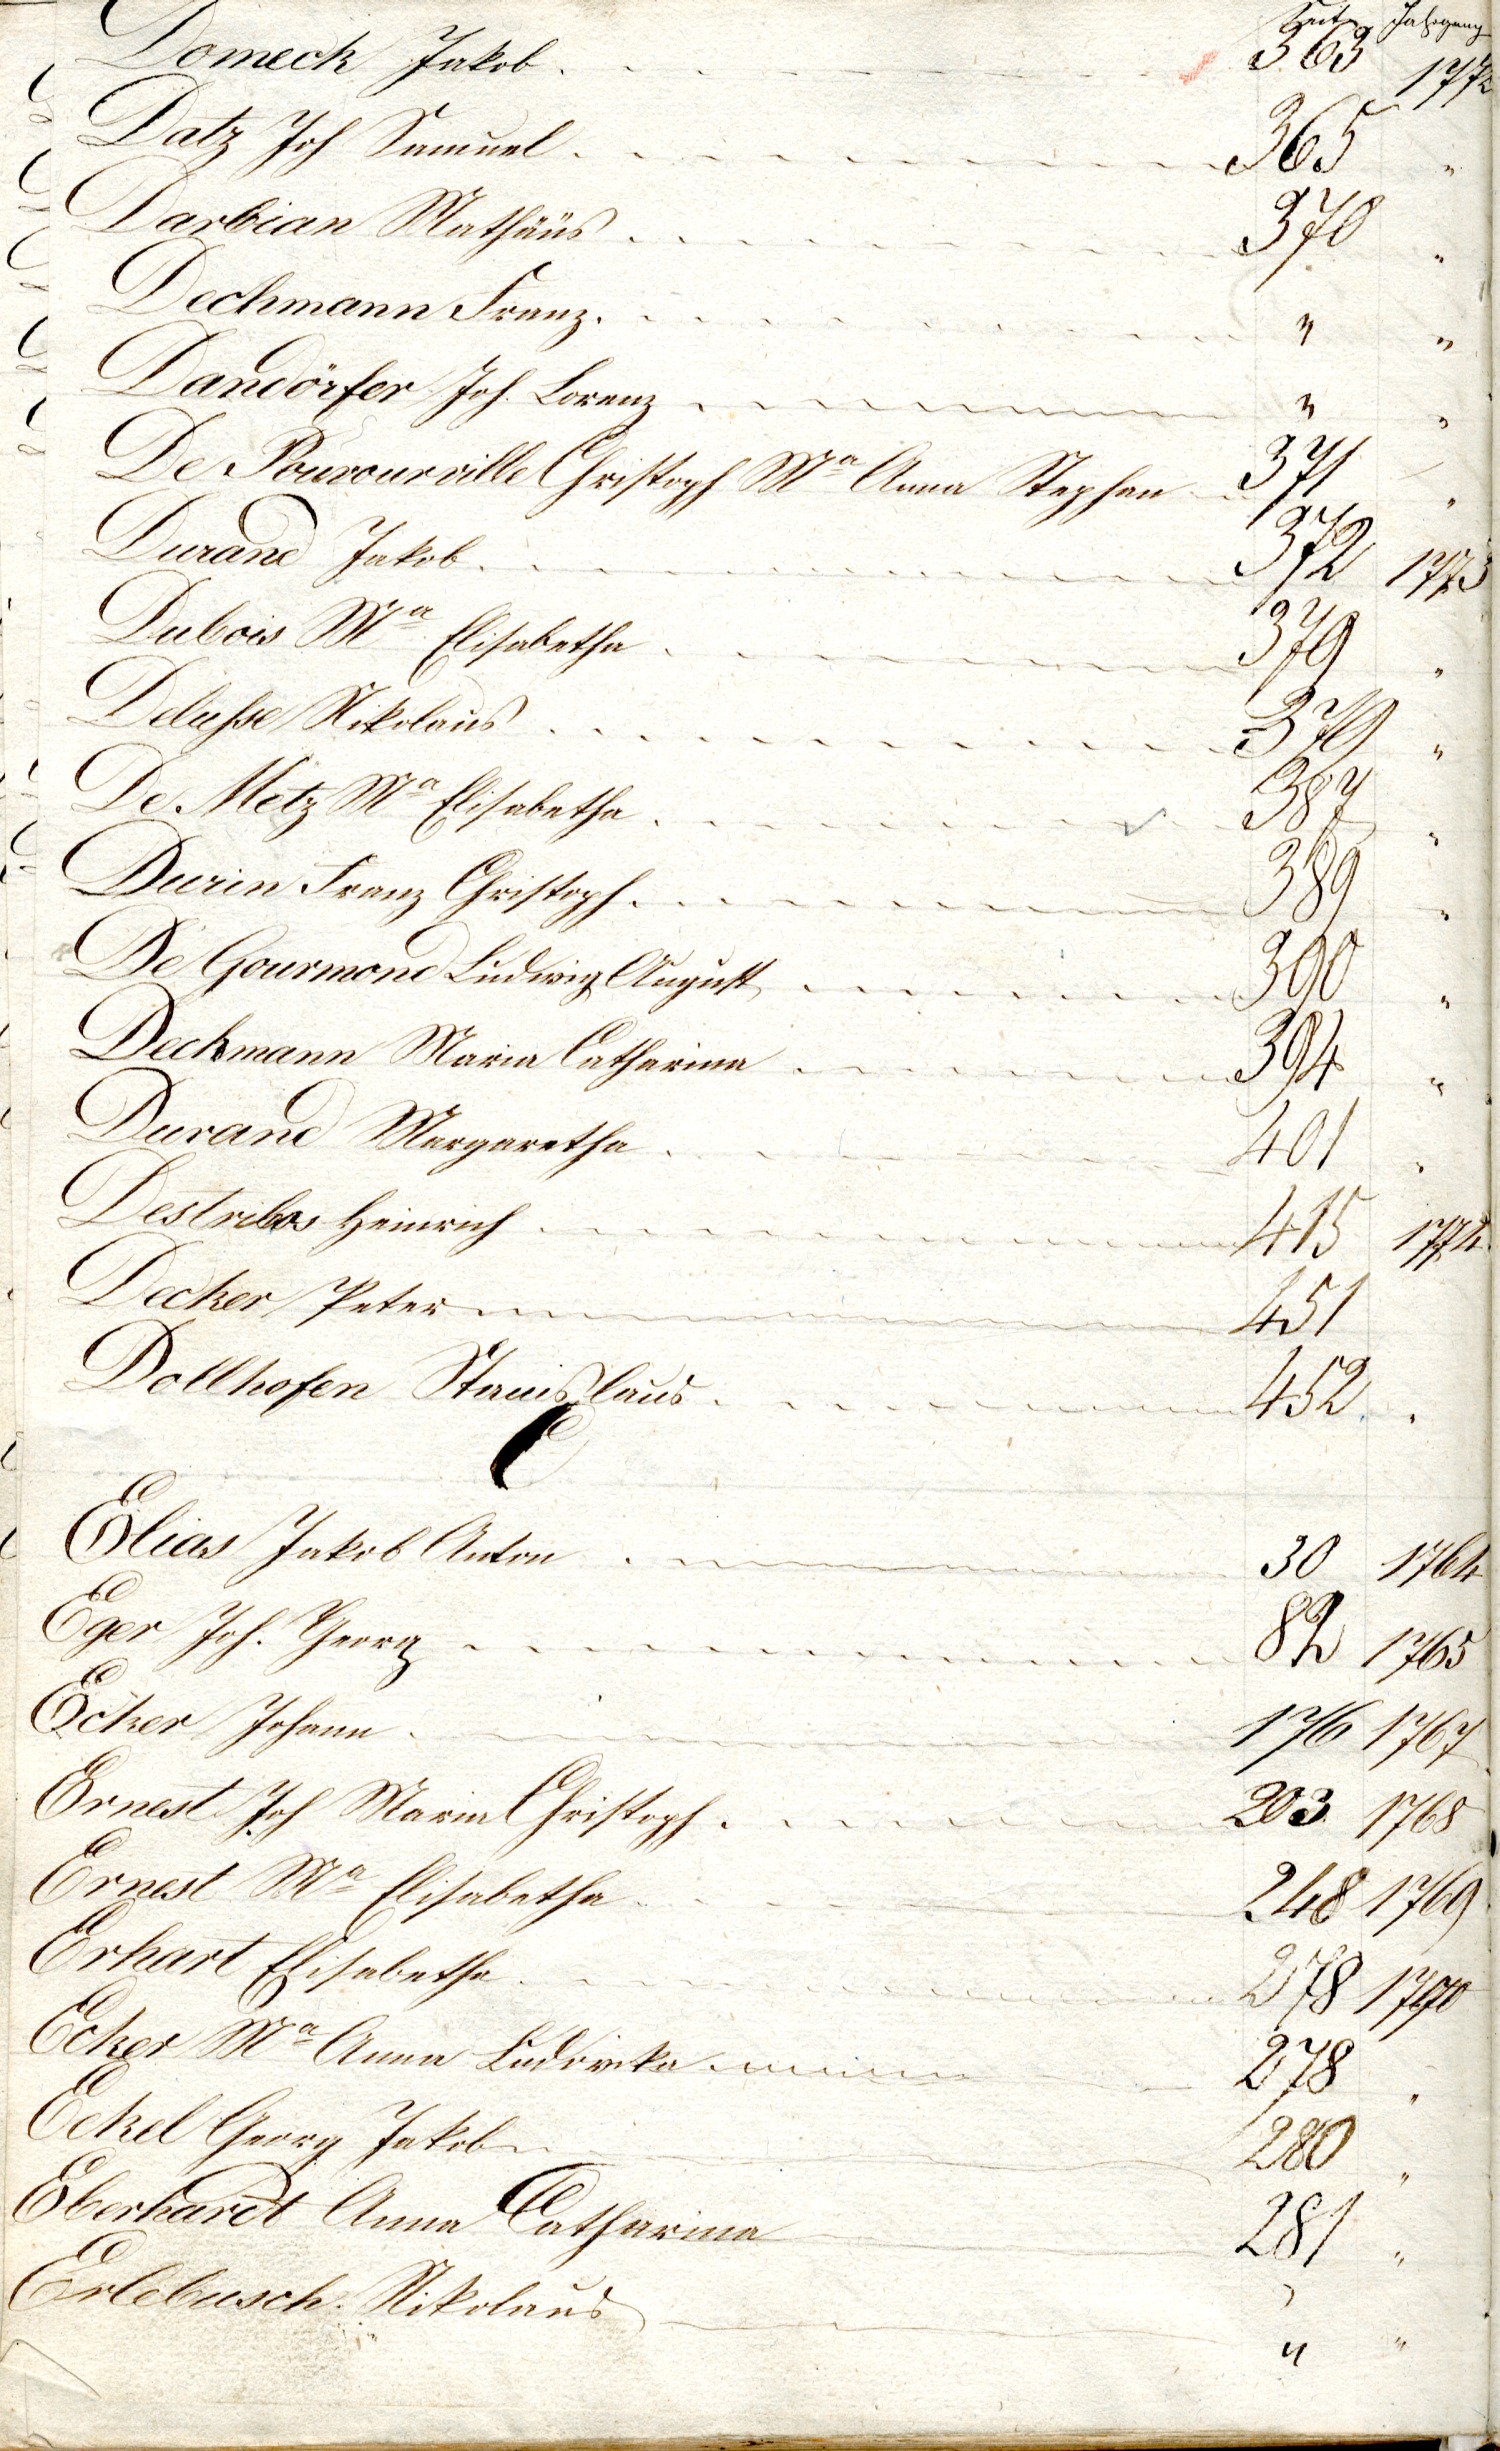 Seite Jahrgang
Domeck Jakob 363 1772
Datz Joh Samuel 365 "
Darbian Mathäus 370 "
Dechmann Franz " "
Dandörfer Joh. Lorenz " "
De Pouvourville Christoph Mª Anna Stephan 371 "
Durand Jakob 372 1773
Dubois Mª Elisabetha 379 "
Delusse Nikolaus 379 "
De Metz Mª Elisabetha 387 "
Durin Franz Christoph 389 "
De Gourmond Ludwig August 390 "
Deckmann Maria Catharina 394 "
Durand Margaretha 401 "
Destrebos Heinrich 415 1774
Decker Peter 451
Dollhofen Stanislaus 452 "
E
Elias Jakob Anton 30 1764
Eger Joh. Georg 82 1765
Ecker Johann 176 1767
Ernest Joh Maria Christoph 203 1768
Ernest Mª Elisabetha 248 1769
Erhart Elisabetha 278 1770
Ecker Mª Anna Ludovika 278 "
Eckel Georg Jakob 280 "
Eberhardt Anna Catharina 281 "
Erlebusch Nikolaus " "